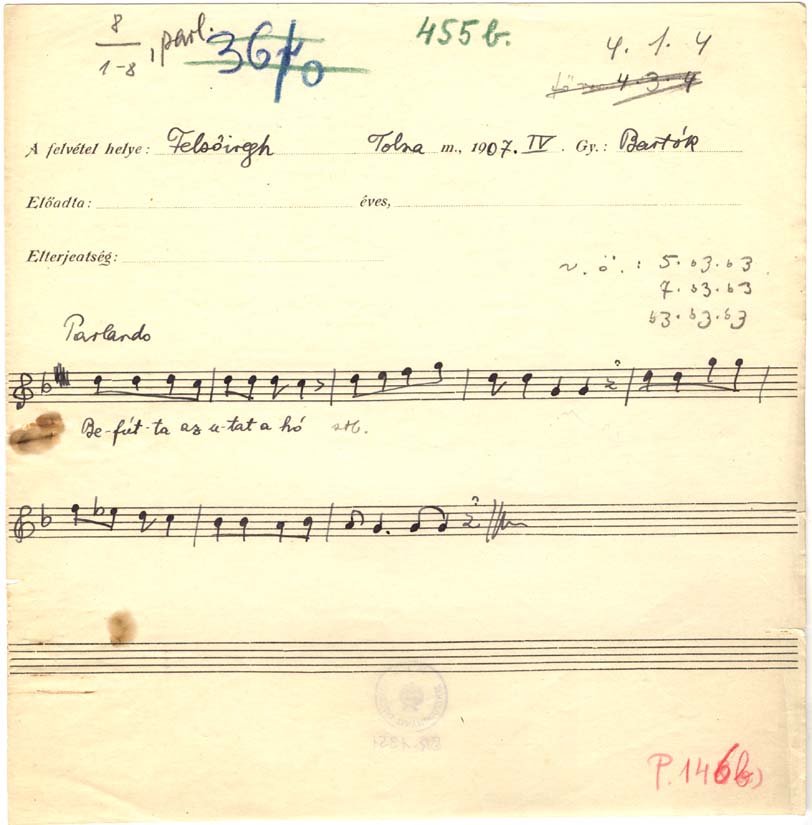 8
1-8 , parl.
3670
455 b.
4. 1. 4
4. 3. 4
A felvétel helye: Felsőiregh Tolna m., 1907. IV. Gy.: Bartók
Előadta: éves,
Elterjeatség:
v. ö.: 5. b3. b3
7. b3. b3
b3. b3. b3
Parlando
Be-fút-ta az u-tat a hó stb.
P. 146b)